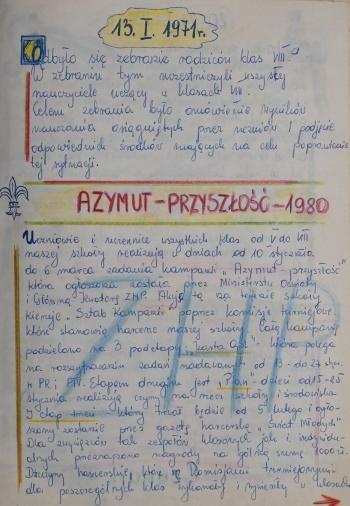 13. I. 1971 r.
Odbyło się zebranie rodziców klas VIII.
W zebraniu tym uczestniczyli wszyscy
nauczyciele uczący w klasach VIII.
Celem zebrania było omówienie wyników
nauczania osiągniętych przez uczniów i podjęcie
odpowiednich środków mających na celu poprawienie
tej sytuacji.
AZYMUT-PRZYSZŁOŚĆ-1980
Uczniowie i uczennice wszystkich klas od V do VIII
naszej szkoły realizują w dniach od 10 stycznia
do 6 marca zadania kampanii "Azymut-przyszłość"
która ogłoszona została przez Ministerstwo Oświaty
i Główną Kwaterę ZHP. Akcją tą na terenie szkoły
kieruje "Sztab Kampanii" poprzez komisje turniejowe
które stanowią harcerze naszej szkoły. Całą kampanię
podzielono na 3 podetapy "karta GSL" która polega
na rozszyfrowaniu zadań nadawanych od 3 - do 27 stycz.
w PR i TV. Etapem drugim jest "Plan" - dzieci od 15-25
stycznia realizują czyny na rzecz szkoły i środowiska.
3 etap zmierz który trwał będzie od 5 lutego i ogło-
szony zostanie przez gazetę harcerską "Świat Młodych"
Dla zwycięzców tak zespołów klasowych jak i indywidu-
alnych przeznaczono nagrody na górną sumę 4000 zł.
Drużyny harcerskie, które są Komisjami turniejowymi
dla poszczególnych klas wykonały i wywiesiły w klasach
ZHP